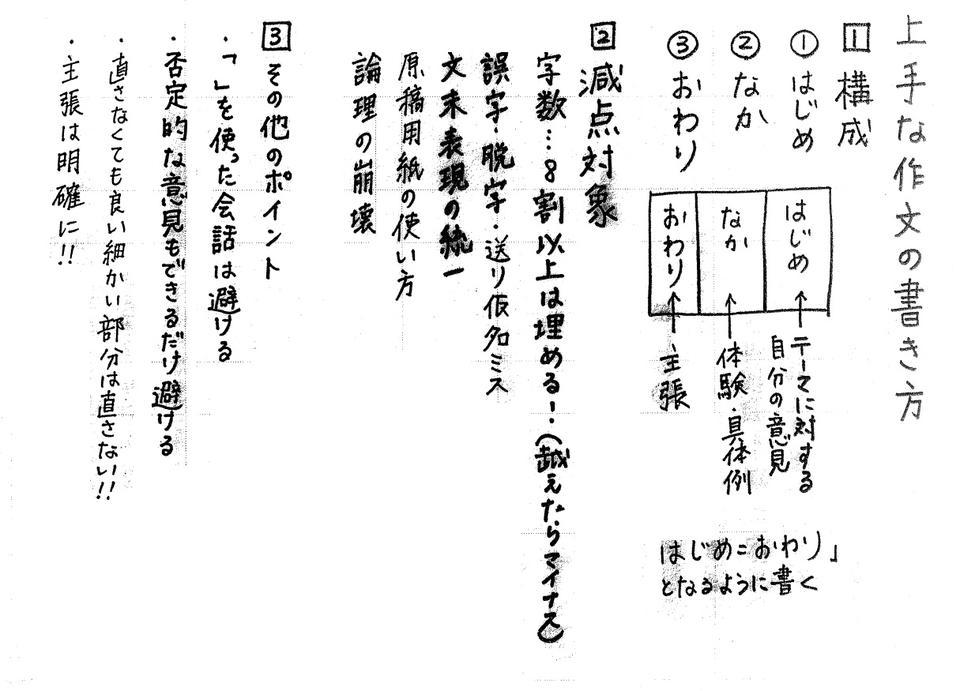 上手な作文の書き方
1 構成
① はじめ
② なか
③ おわり
はじめ
なか
おわり
テーマに対する
自分の意見
体験・具体例
主張
はじめ=おわり」
となるように書く
2 減点対象
字数…8割以上は埋める!(越えたらマイナス)
誤字・脱字・送り仮名ミス
文末表現の統一
原稿用紙の使い方
論理の崩壊
3 その他のポイント
・「 」を使った会話は避ける
・否定的な意見もできるだけ避ける
・直さなくても良い細かい部分は直さない!!
・主張は明確に!!